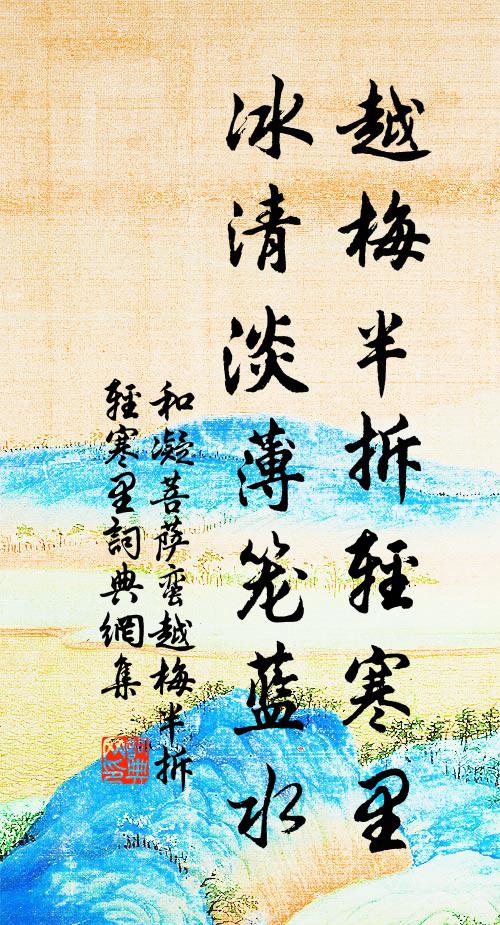 越梅半拆輕寒里
冰清淡薄笼藍水
和凝菩萨蛮越梅半拆
輕寒里詞典網集